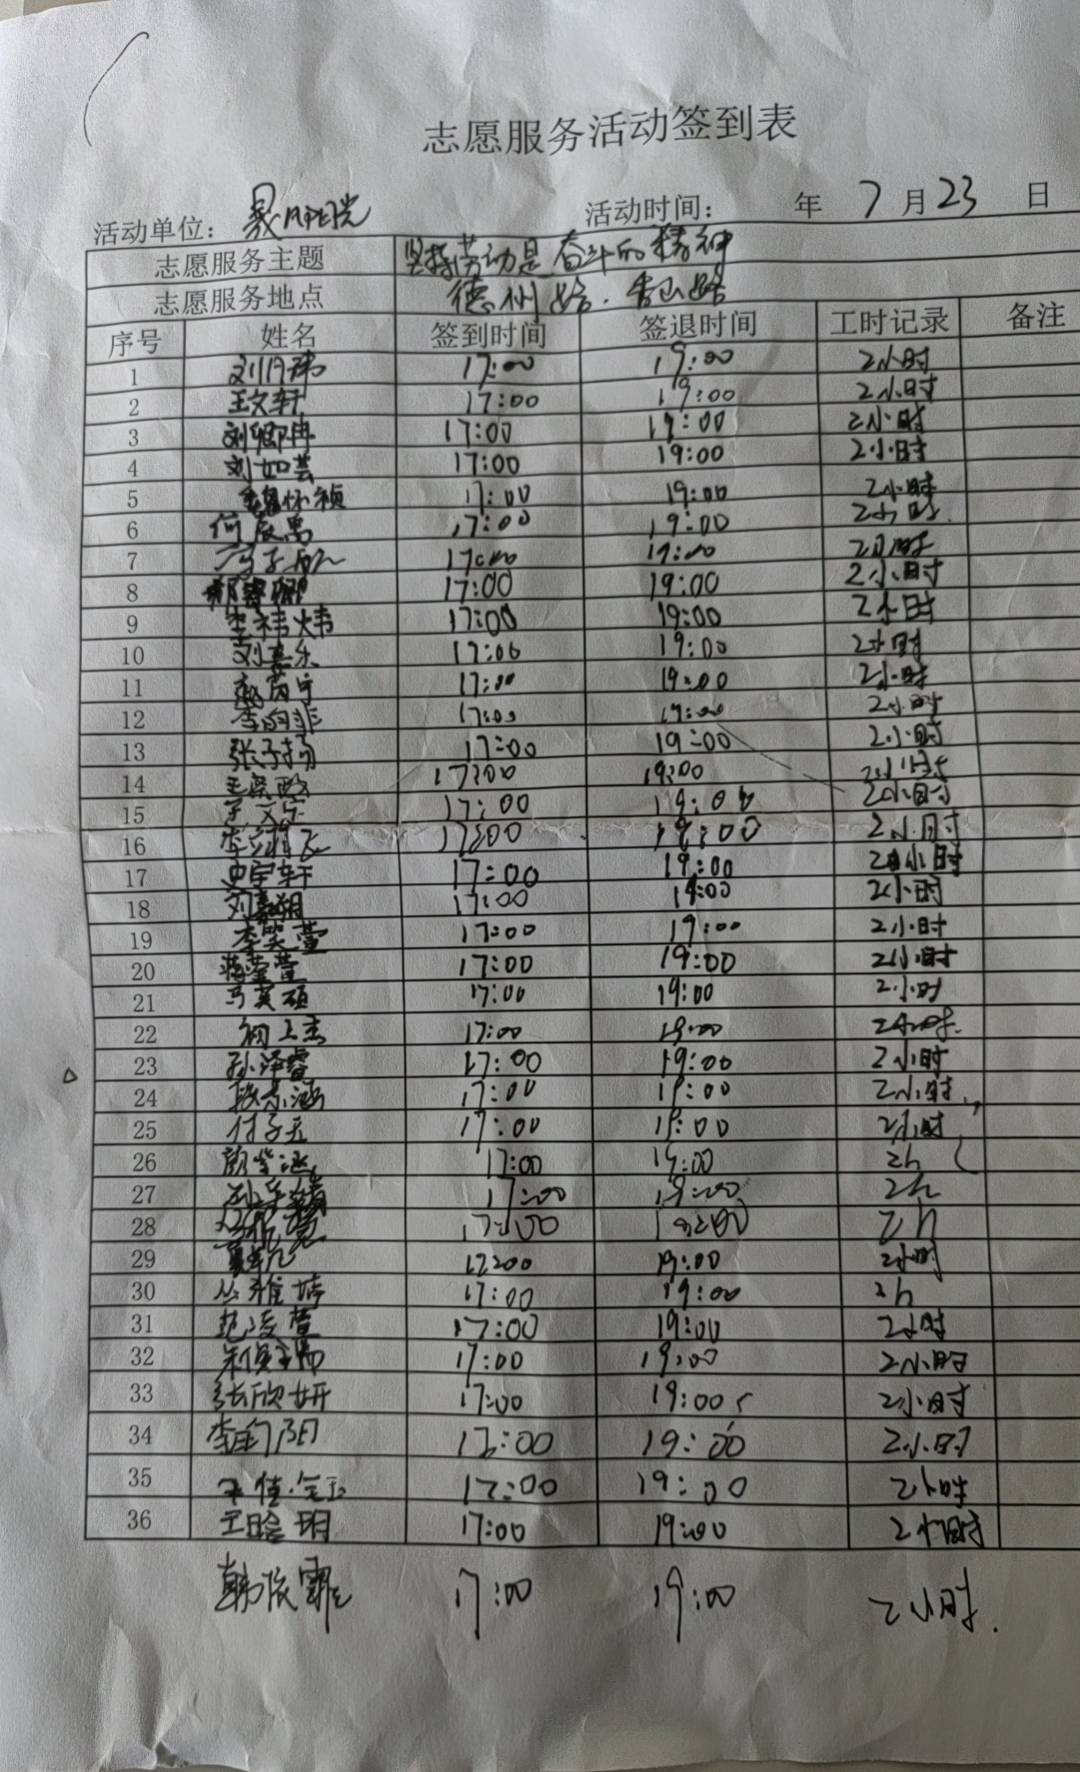 志愿服务活动签到表
活动单位： 活动时间： 年 7 月 23 日
志愿服务主题 坚持劳动是奋斗的精神
志愿服务地点 德州路、香山路
序号 姓名 签到时间 签退时间 工时记录 备注
1 刘月玮 17:00 19:00 2小时
2 王文轩 17:00 19:00 2小时
3 刘卿冉 17:00 19:00 2小时
4 刘如芸 17:00 19:00 2小时
5 怀祯 17:00 19:00 2小时
6 何辰禹 17:00 19:00 2小时.
7 17:00 19:00 2小时
8 17:00 19:00 2小时
9 李祎炜 17:00 19:00 2小时
10 刘嘉乐 17:00 19:00 2小时
11 17:00 19:00 2小时
12 李昀非 17:00 19:00 2小时
13 张子扬 17:00 19:00 2小时
14 17:00 19:00 2小时
15 17:00 19:00 2小时
16 17:00 19:00 2小时
17 史宇轩 17:00 19:00 2小时
18 刘嘉翊 17:00 19:00 2小时
19 李笑萱 17:00 19:00 2小时
20 蒋蓥萱 17:00 19:00 2小时
21 马英硕 17:00 19:00 2小时
22 初上杰 17:00 19:00 2小时.
23 孙泽睿 17:00 19:00 2小时
24 涵 17:00 19:00 2小时
25 付子元 17:00 19:00 2小时
26 颜紫涵 17:00 19:00 2h
27 17:00 19:00 2h
28 17:00 19:00 2h
29 17:00 19:00 2小时
30 丛雅婧 17:00 19:00 2h
31 范凌萱 17:00 19:00 2小时
32 17:00 19:00 2小时
33 张欣妍 17:00 19:00 2小时
34 李昀阳 17:00 19:00 2小时
35 17:00 19:00 2小时
36 王晗玥 17:00 19:00 2小时
韩依霏 17:00 19:00 2小时.